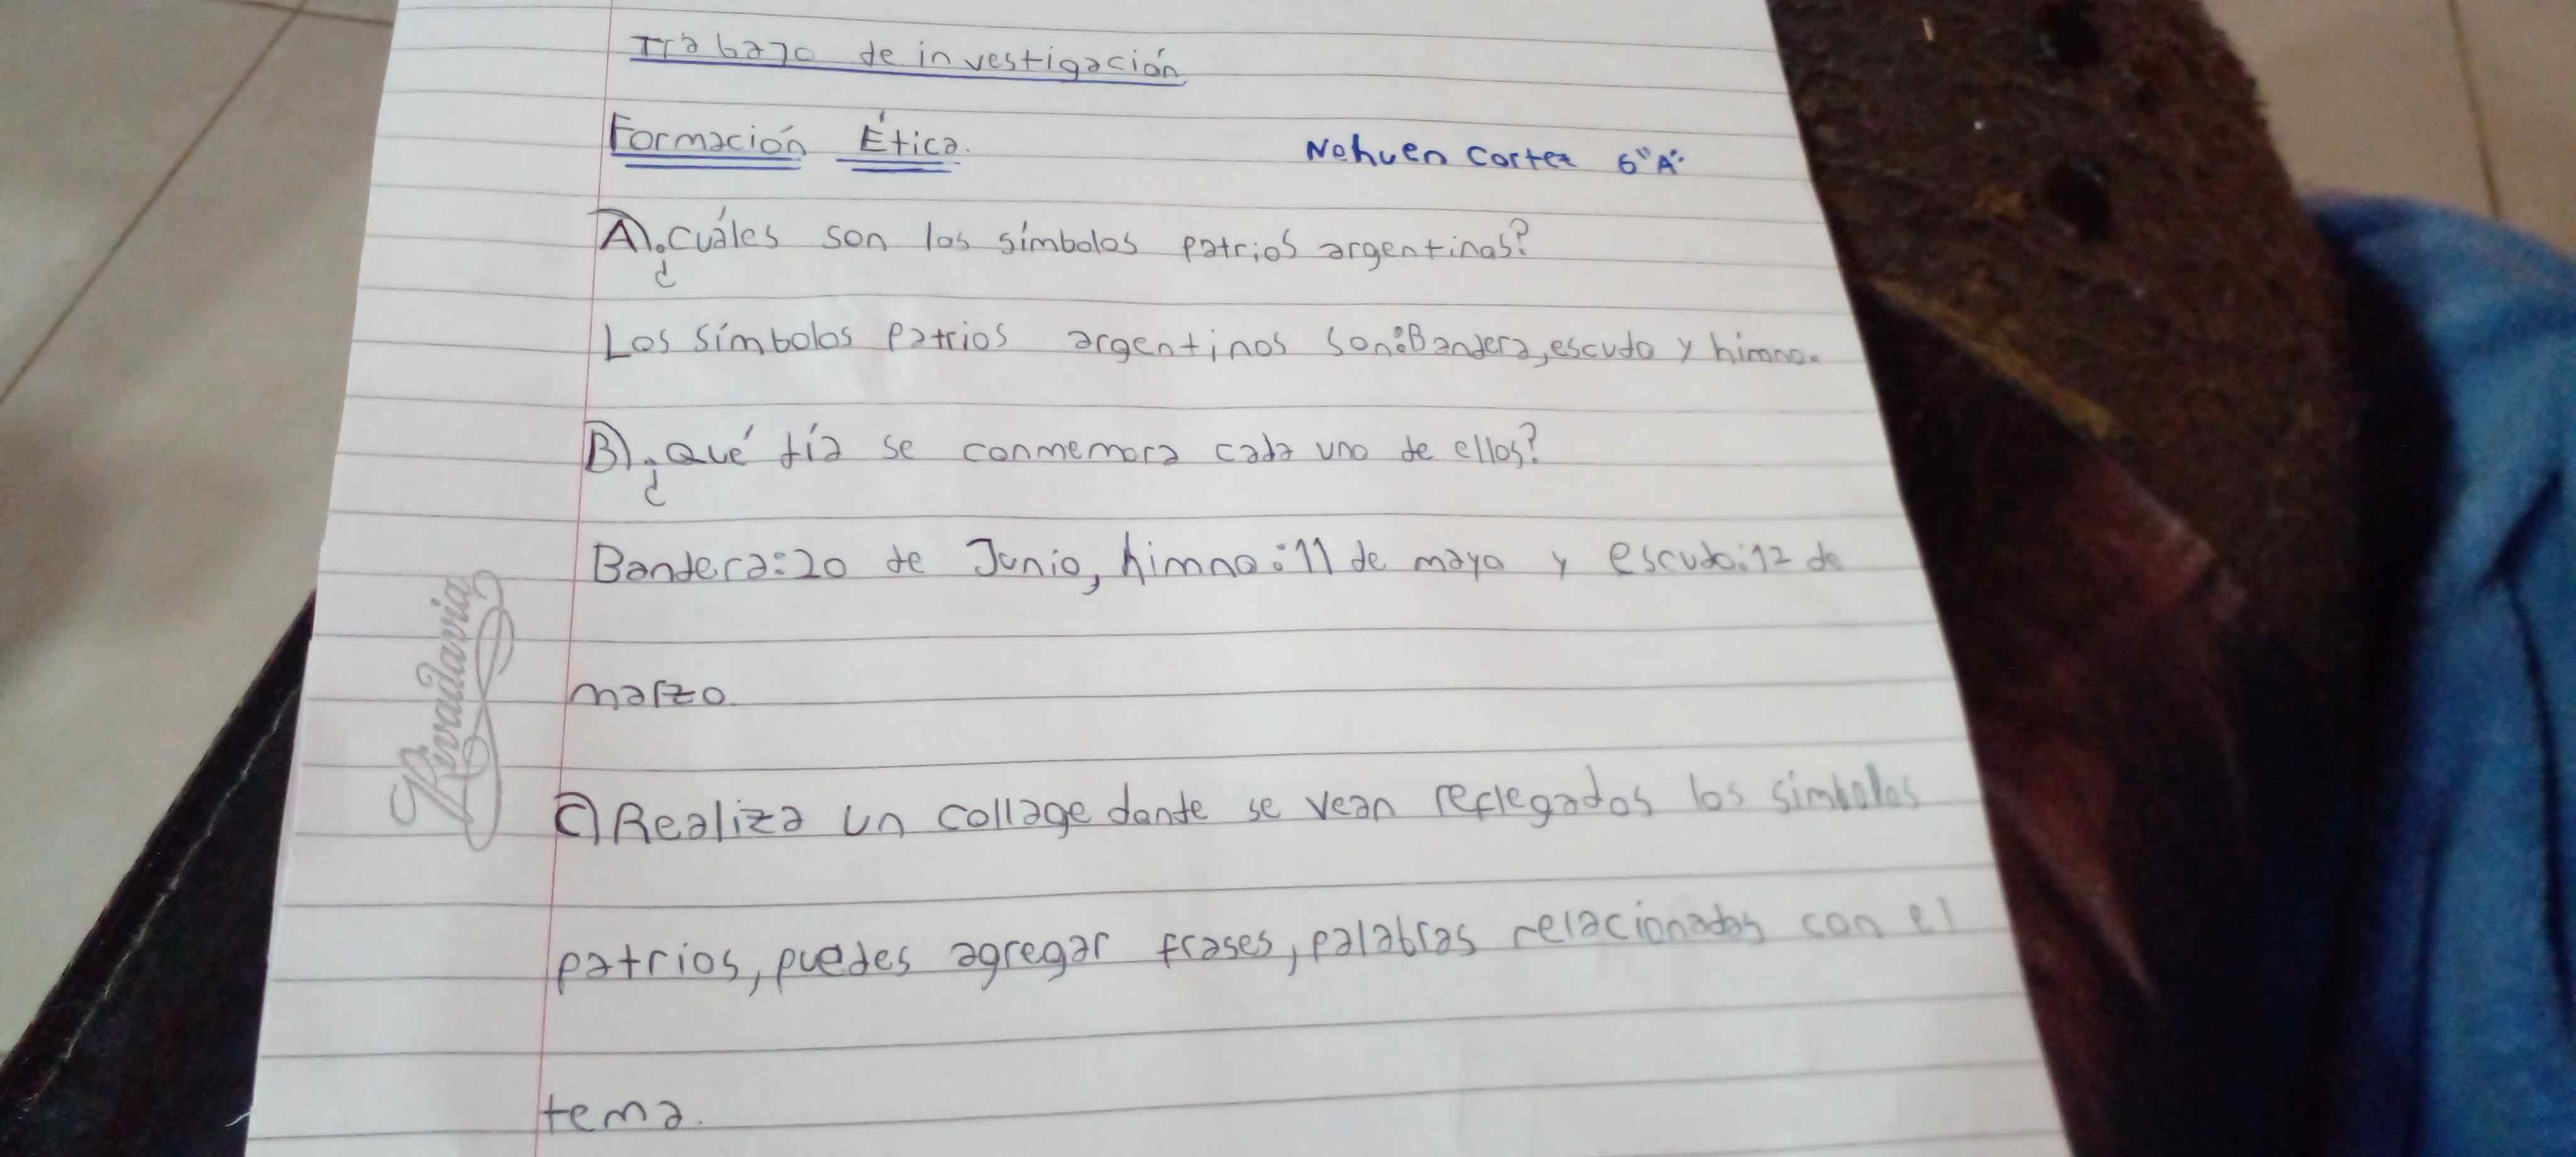 Trabajo de investigación
Formación Ética.
Nahuen Cortez 6"A"
A)¿Cuáles son los símbolos patrios argentinos?
Los símbolos Patrios argentinos son:Bandera,escudo y himno.
B)¿Qué día se conmemora cada uno de ellos?
Bandera:20 de Junio, himno:11 de mayo y escudo:12 de
marzo.
C)Realiza un collage donde se vean reflegados los símbolos
patrios, puedes agregar frases, palabras relacionadas con el
tema.
Rivadavia